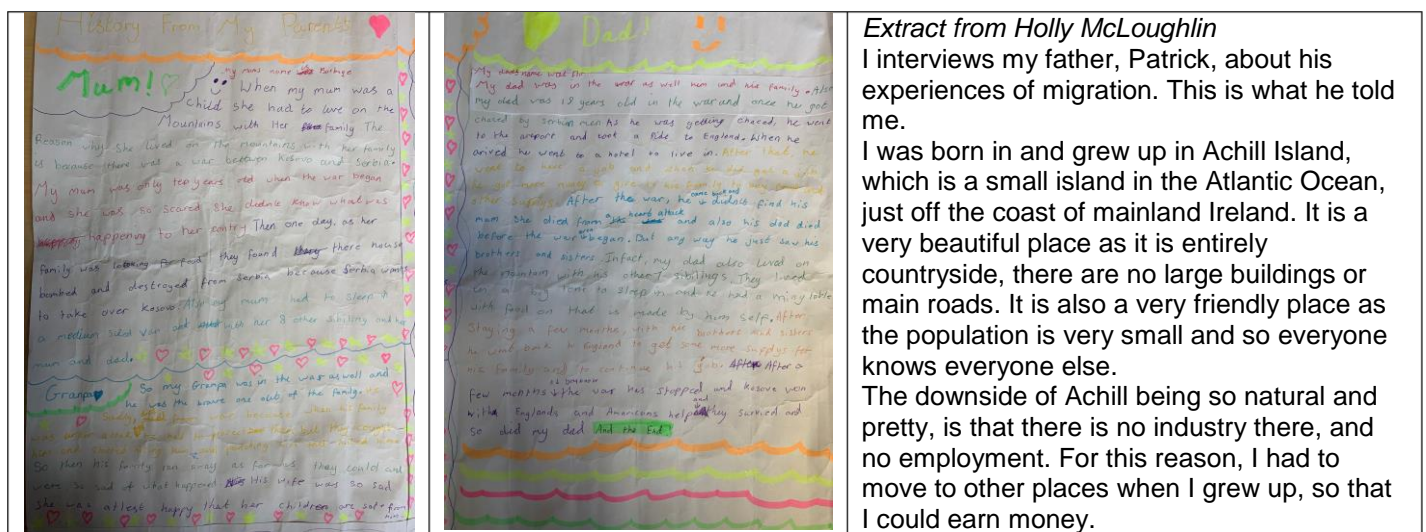 History From My Parents
Mum!
My mums name is Fathye
When my mum was a
child she had to live on the
Mountains with Her family The
Reason why she lived on the mountains with her family
is because there was a war between Kosovo and Serbia.
My mum was only ten years old when the war began
and she was so scared she didn't know what was
happening to her contry Then one day, as her
family was looking for food they found there house
bombed and destroyed from Serbia because Serbia wants
to take over Kosovo. my mum had to sleep in
a medium sized van with her 8 other sibiling and her
mum and dad.
Granpa
So my Granpa was in the war as well and
he was the brave one out of the family.
So then his family ran away as far as they could and
were so sad of what happened His wife was so sad
she was atlest happy that her children are safe from
Dad!
My dads name was
My dad was in the war as well him and his family. Also
my dad was 18 years old in the war and once he got
chased by serbian men As he was getting chased, he went
to the areport and took a Ride to England. When he
arived he went to a hotel to live in. After that, he
After the war, he came back and didn't find his
mum she died from a heart attack and also his dad died
before the war began. But any way he just saw his
brothers and sisters Infact, my dad also lived on
the mountain with his other 7 sibilings They lived
in a big tent to sleep in and he had a table
with food on that is made by him self. After
Staying a few months, with his brothers and sisters
he went back to England to get some more supplys for
his family and to continue his job. After a
few months the war has stopped and Kosovo won
with Englands and Americans help and they survied and
so did my dad And the End
Extract from Holly McLoughlin
I interviews my father, Patrick, about his
experiences of migration. This is what he told
me.
I was born in and grew up in Achill Island,
which is a small island in the Atlantic Ocean,
just off the coast of mainland Ireland. It is a
very beautiful place as it is entirely
countryside, there are no large buildings or
main roads. It is also a very friendly place as
the population is very small and so everyone
knows everyone else.
The downside of Achill being so natural and
pretty, is that there is no industry there, and
no employment. For this reason, I had to
move to other places when I grew up, so that
I could earn money.